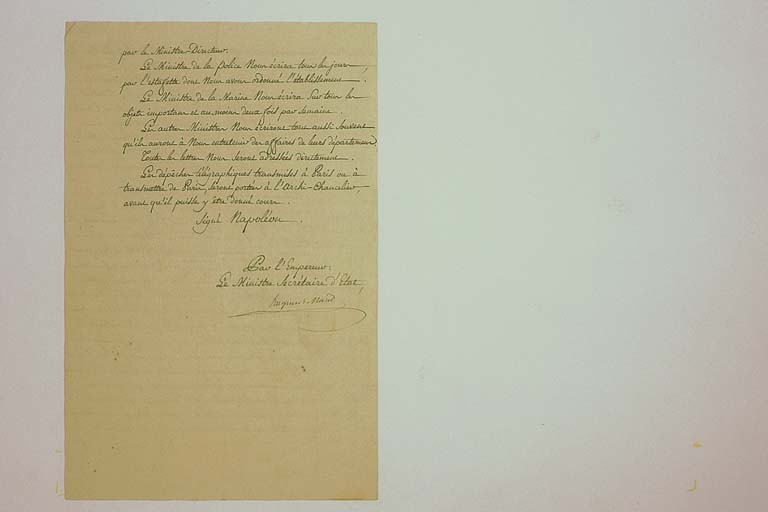 par le Ministre-Directeur.
Le Ministre de la Police Nous écrira tous les jours,
par l'estafette dont Nous avons ordonné l'établissement.
Le Ministre de la Marine Nous écrira sur tous les
objets importans et au moins deux fois par semaine.
Les autres Ministres Nous écriront tous aussi souvent
qu'ils auront à Nous entretenir des affaires de leurs départemens.
Toutes les lettres Nous seront adressées directement.
Les dépêches télégraphiques transmises à Paris ou à
transmettre de Paris, seront portées à l'Archi-Chancelier,
avant qu'il puisse y être donné cours.
Signé Napoléon.
Par l'Empereur:
Le Ministre Secrétaire d'Etat,
Hugues B. Maret